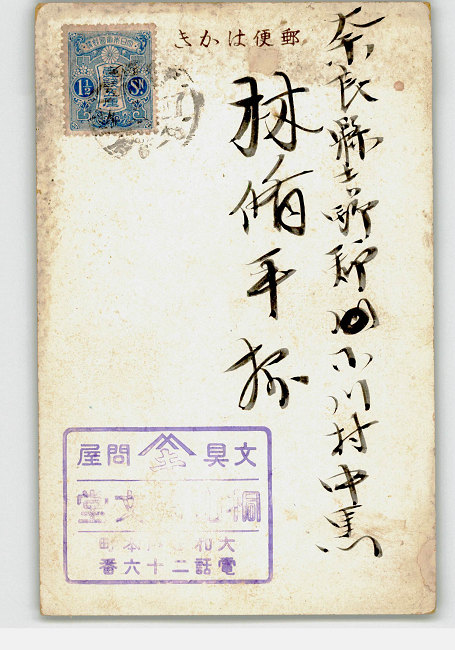 郵便はかき
奈良縣吉野郡小川村中黒
林脩平様
1½
Sn
文具 問屋
桐 文堂
大和 本町
電話二十六番